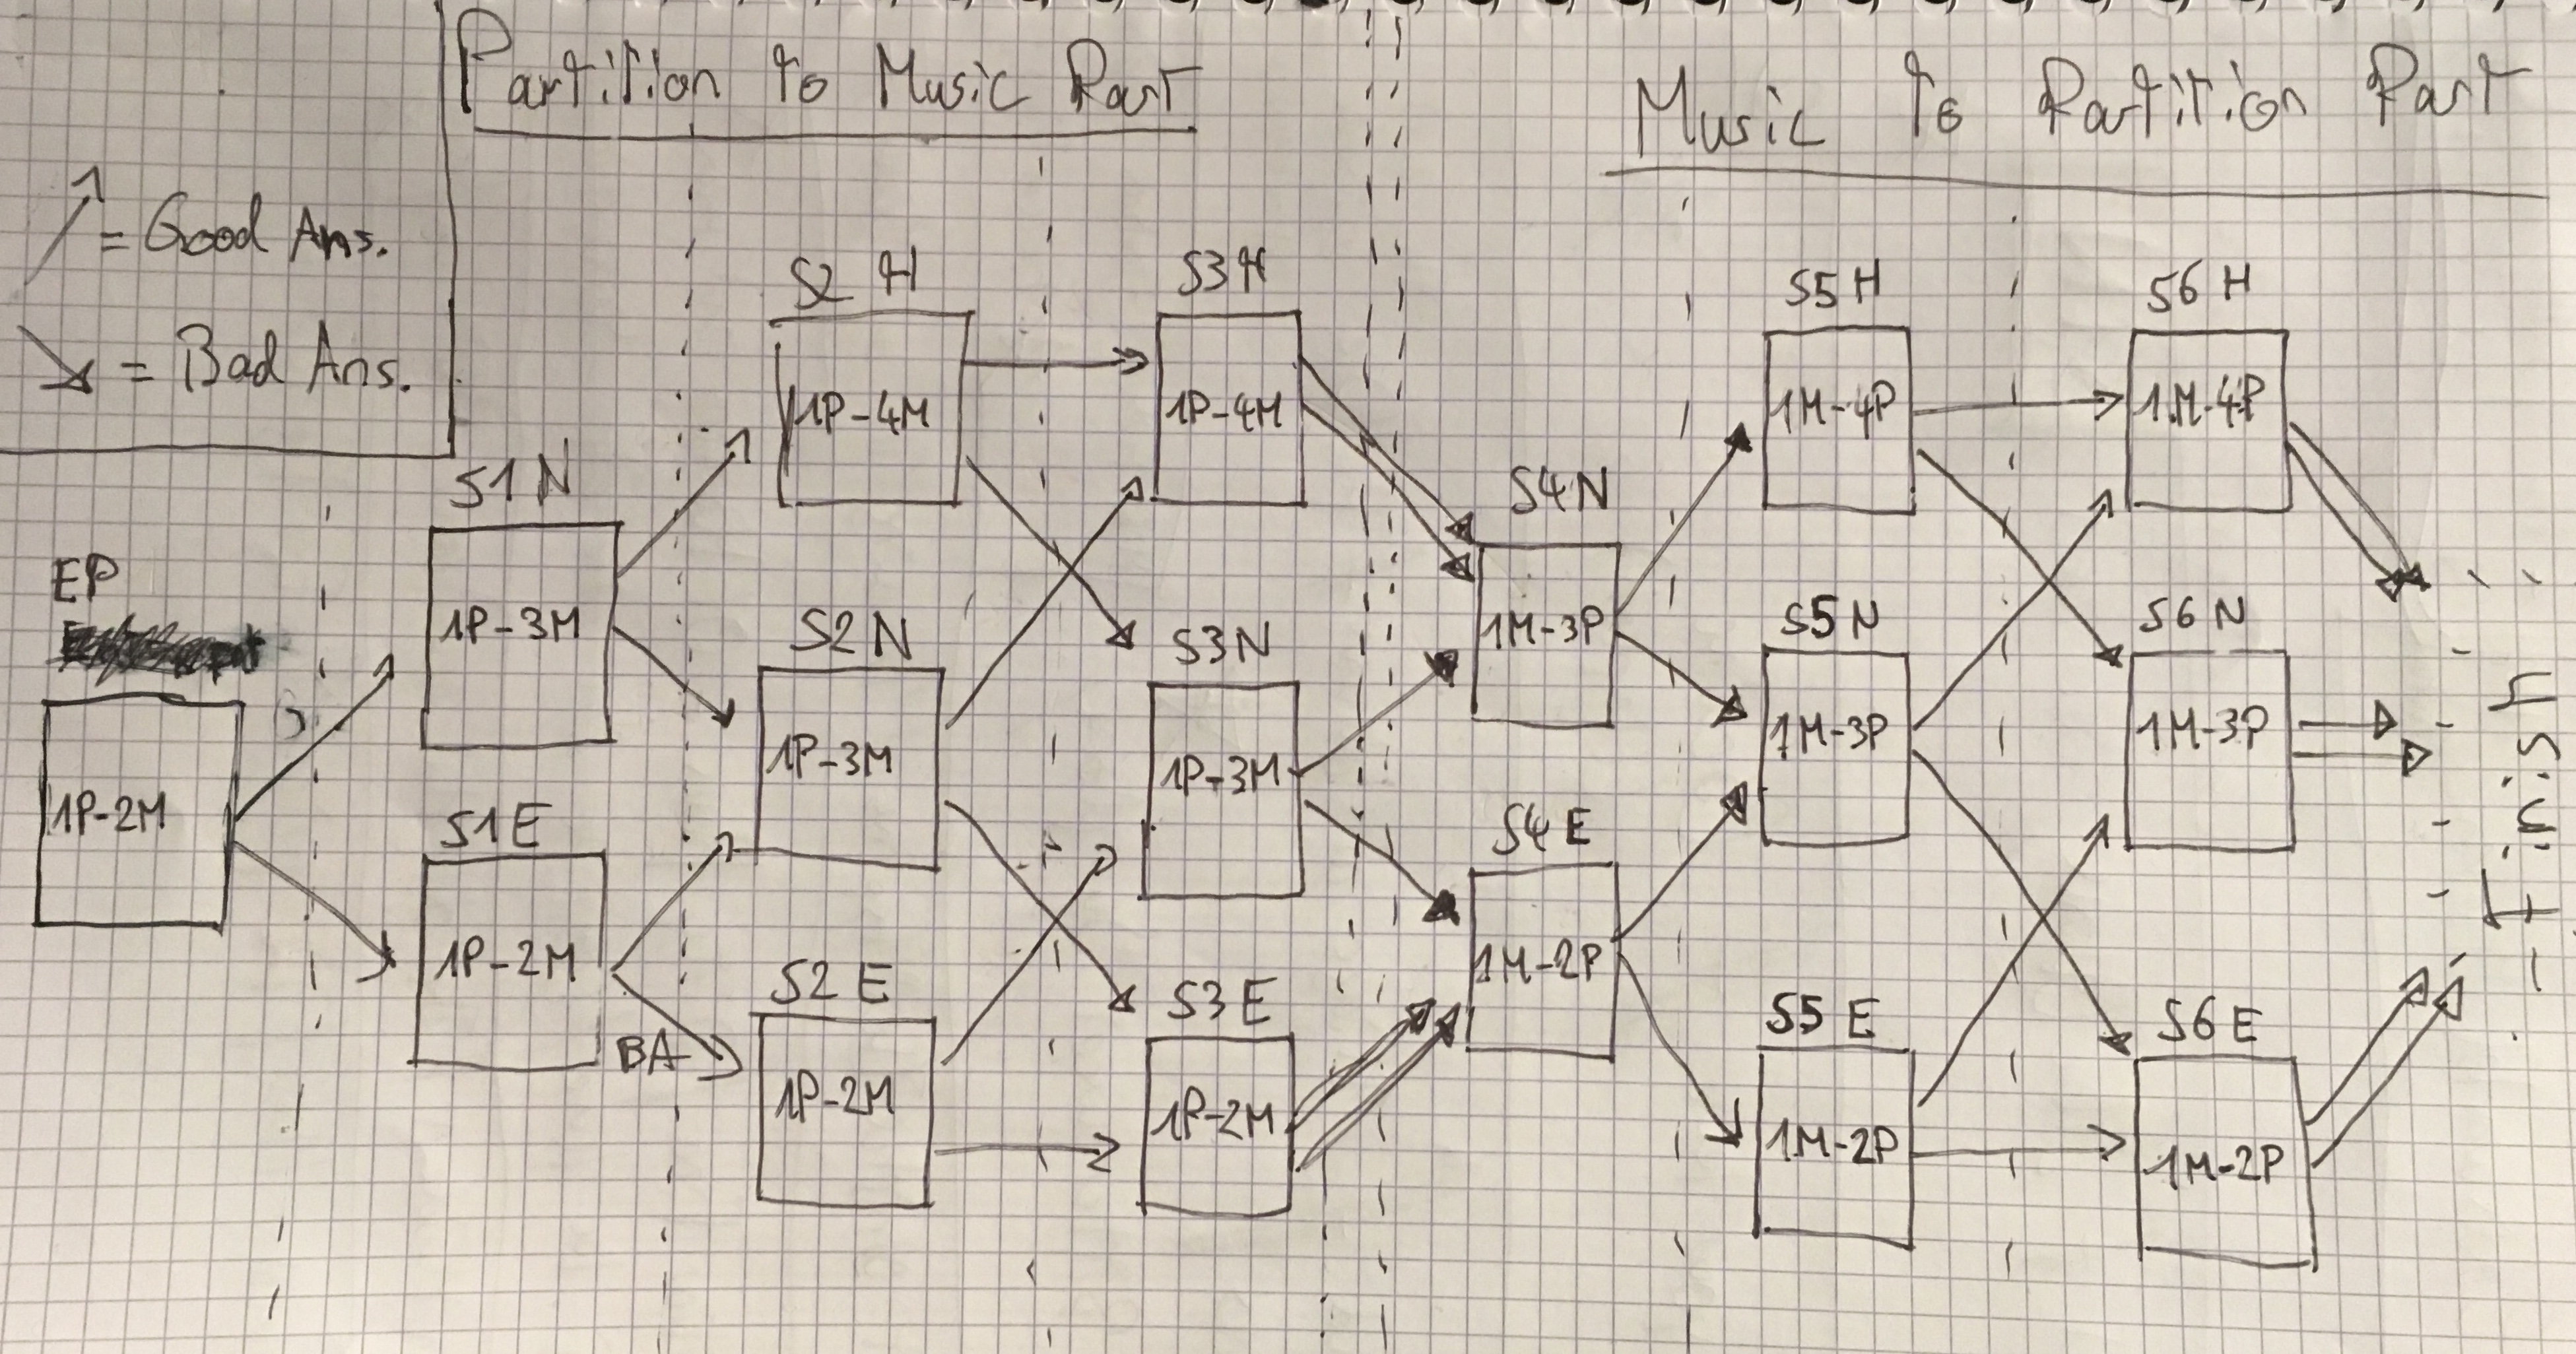 Partition to Music Part
Music to Partition Part
= Good Ans.
= Bad Ans.
EP
1P-2M
S1 N
1P-3M
S1 E
1P-2M
BA
S2 H
1P-4M
S2 N
1P-3M
S2 E
1P-2M
S3 H
1P-4M
S3 N
1P-3M
S3 E
1P-2M
S4 N
1M-3P
S4 E
1M-2P
S5 H
1M-4P
S5 N
1M-3P
S5 E
1M-2P
S6 H
1M-4P
S6 N
1M-3P
S6 E
1M-2P
Finish